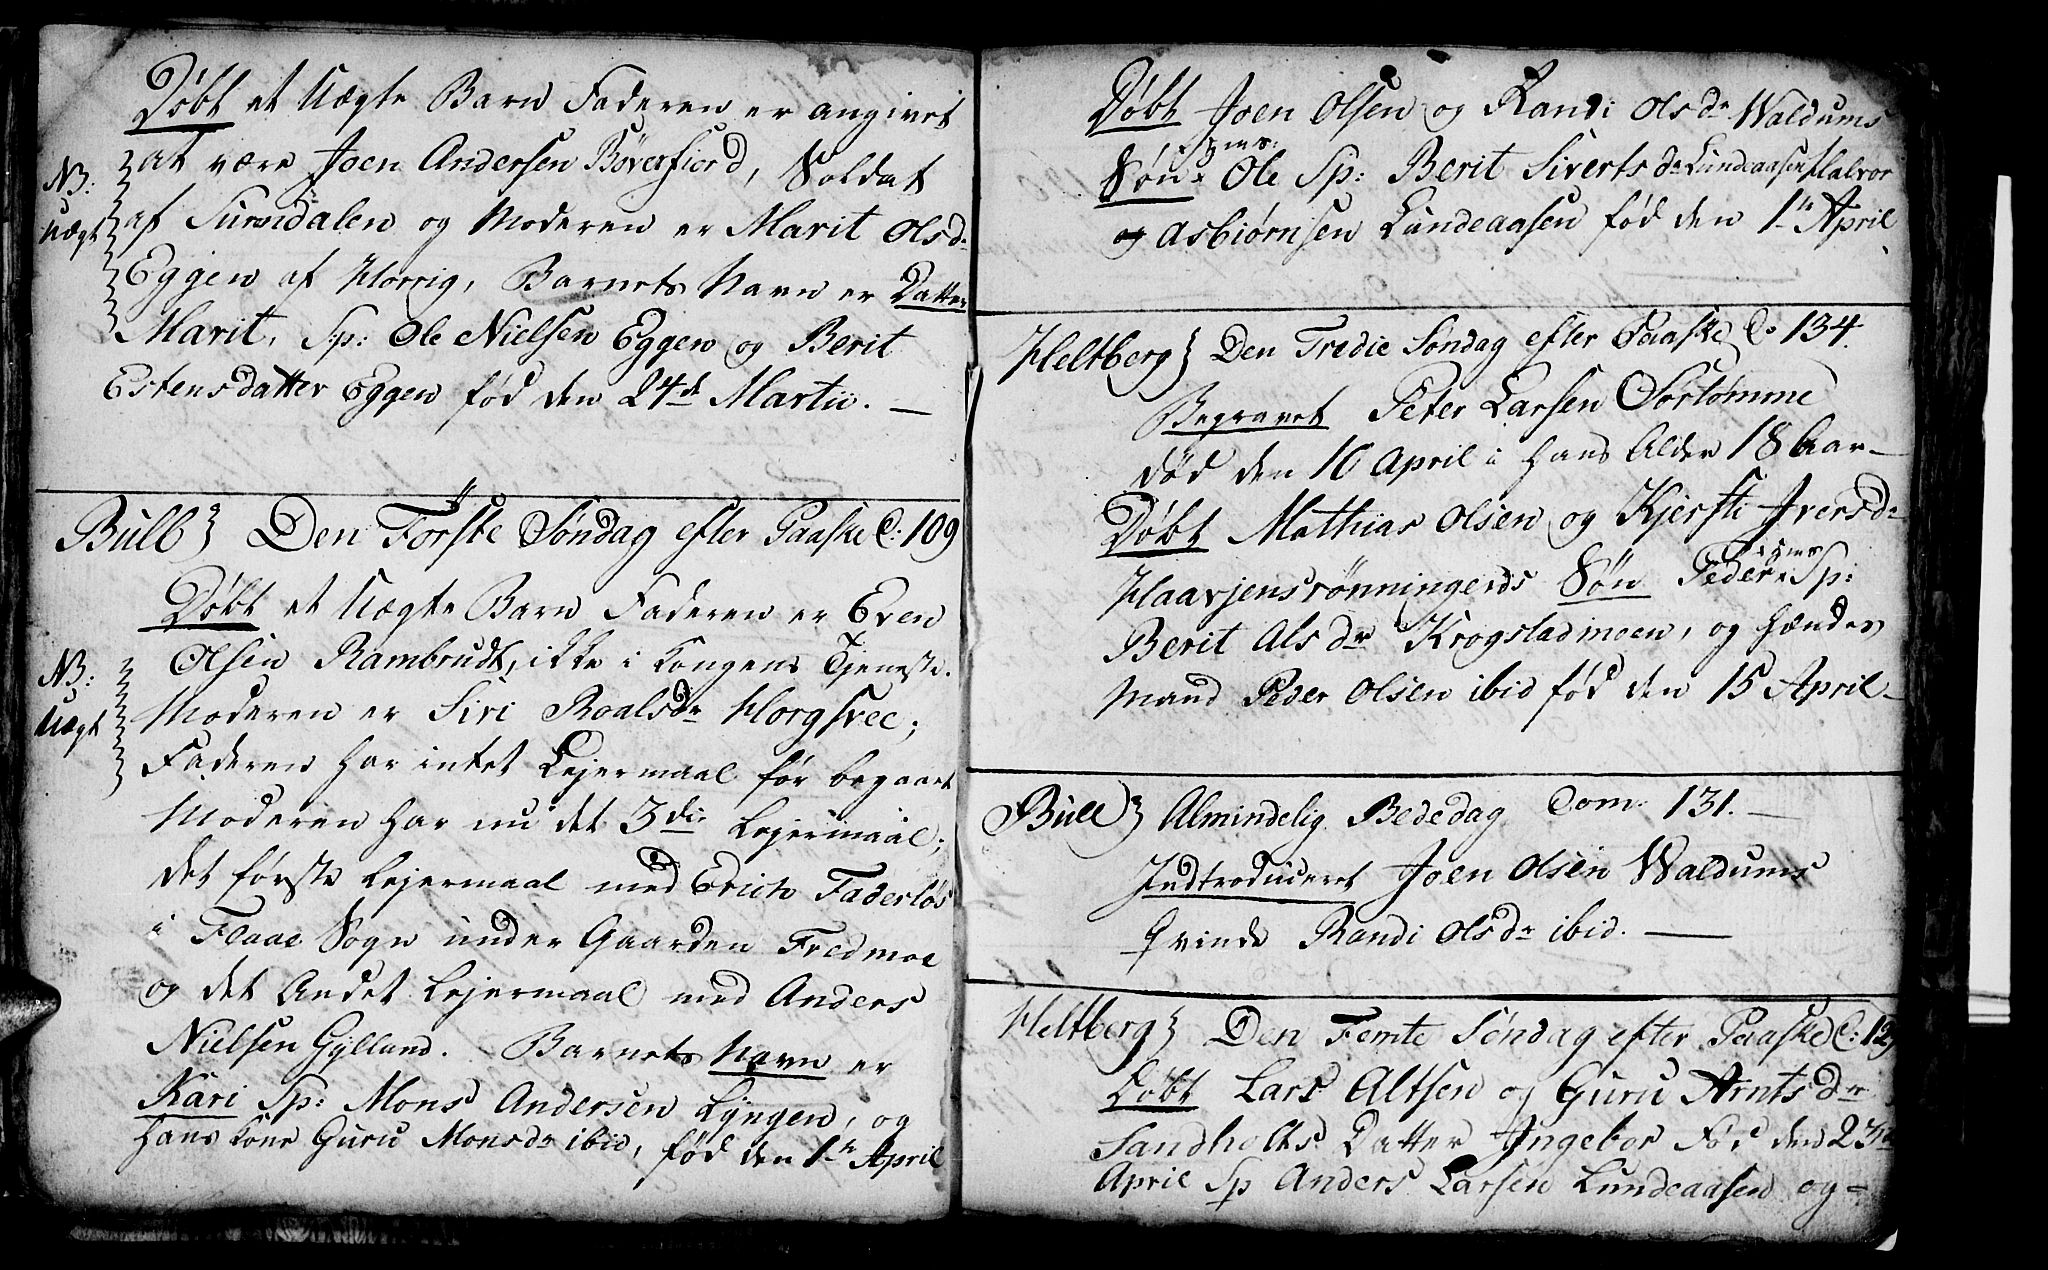 Døbt et Uægte Barn Faderen er angivet
at være Joen Andersen Bøverfiord, Soldat
NB:
Uægt
af Surendalen og Moderen er Marit Olsd:
Eggen af Horrig, Barnets Navn er Datter
Marit, Sp: Ole Nielsen Eggen og Berit
Estensdatter Eggen fød den 24de Martii. —
Bull} Den Første Søndag efter Paaske C: 109
Døbt et Uægte Barn Faderen er Even
Olsen Rambrudt, ikke i Kongens Tjeneste.
NB:
Uægt
Moderen er Siri Roalsdr Horgsvee;
Faderen har intet Lejermaal før begaaet
Moderen har nu det 3di Lejermaal;
det første Lejermaal med Erich Faderløs
i Flaae Sogn under Gaarden Fredmoe
og det Andet Lejermaal med Anders
Nielsen Gylland. Barnets Navn er
Kari Sp: Mons Andersen Lyngen, og
Hans Kone Guru Monsdr ibid, fød den 1te April
Døbt Joen Olsen og Randi Olsdr Waldums
Søn Ole Sp: Berit Sivertsdr Lundeaasen Halvor
og Asbiørnsen Lundeaasen fød den 1te April
Heltberg} Den Tredie Søndag efter Paaske C: 134.
Begravet Peter Larsen Sortømme
død den 16 April i Hans Alder 18 Aar —
Døbt Mathias Olsen og Kjersti Iversdr
Haavjensrønningerds Søn Peder Sp:
Berit Alsdr Krogstadmoen, og Hændes
Mand Peder Olsen ibid fød den 15 April —
Bull} Almindelig Bededag Com: 131. —
Indtroduceret Joen Olsen Waldums
Qvinde Randi Olsdr ibid. —
Heltberg} Den Femte Søndag efter Paaske C: 129
Døbt Lars Altsen og Guru Arntsdr
Sandholts Datter Ingebor Fød den 23de
April Sp Anders Larsen Lundeaasen og —